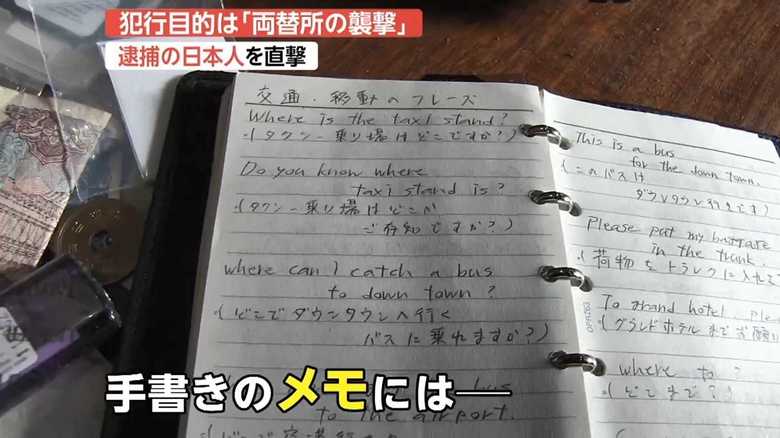 犯行目的は「両替所の襲撃」
逮捕の日本人を直撃
交通・移動のフレーズ
Where is the taxi stand?
(タクシー乗り場はどこですか?)
Do you know where
taxi stand is?
(タクシー乗り場はどこか
ご存知ですか?)
where can I catch a bus
to down town?
(どこでダウンタウンへ行く
バスに乗れますか?)
bus
to the airport.
This is a bus
for the down town.
(このバスは
ダウンタウン行きです)
Please put my baggage
in the trunk.
(荷物をトランクに入れて
To grand hotel, ple
(グランドホテルまでお願い
where to?
(どこまで?)
手書きのメモには──